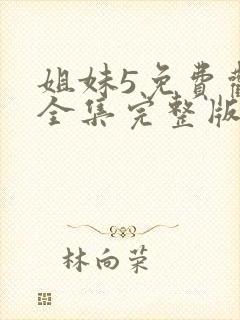 姐妹5免费
全集完整版
林向荣